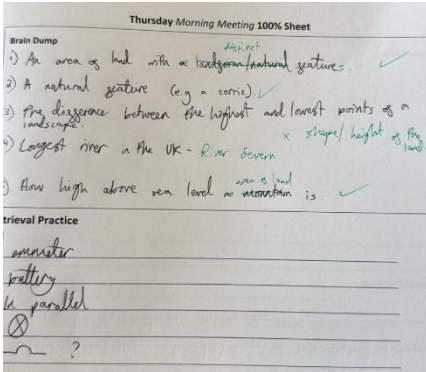 Thursday Morning Meeting 100% Sheet
Brain Dump
distinct
1) An area of land with a landform/natural features.
2) A natural feature (e.g a corrie).
3) The difference between the highest and lowest points of a
landscape. x shape/height of the land
4) Longest river in the UK - River Severn
area of land
) How high above sea level a mountain is.
trieval Practice
ammeter
battery
In parallel
?